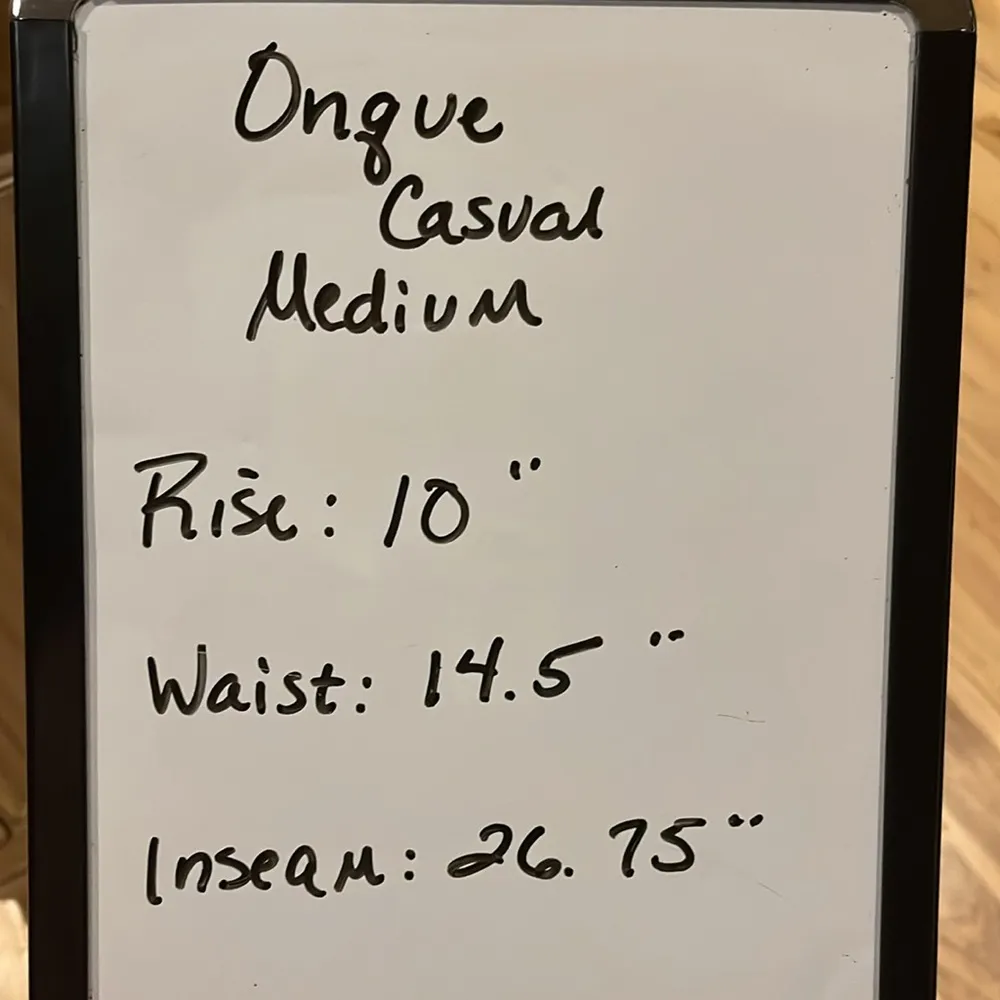 Onque
Casual
Medium
Rise: 10"
Waist: 14.5"
Inseam: 26.75"